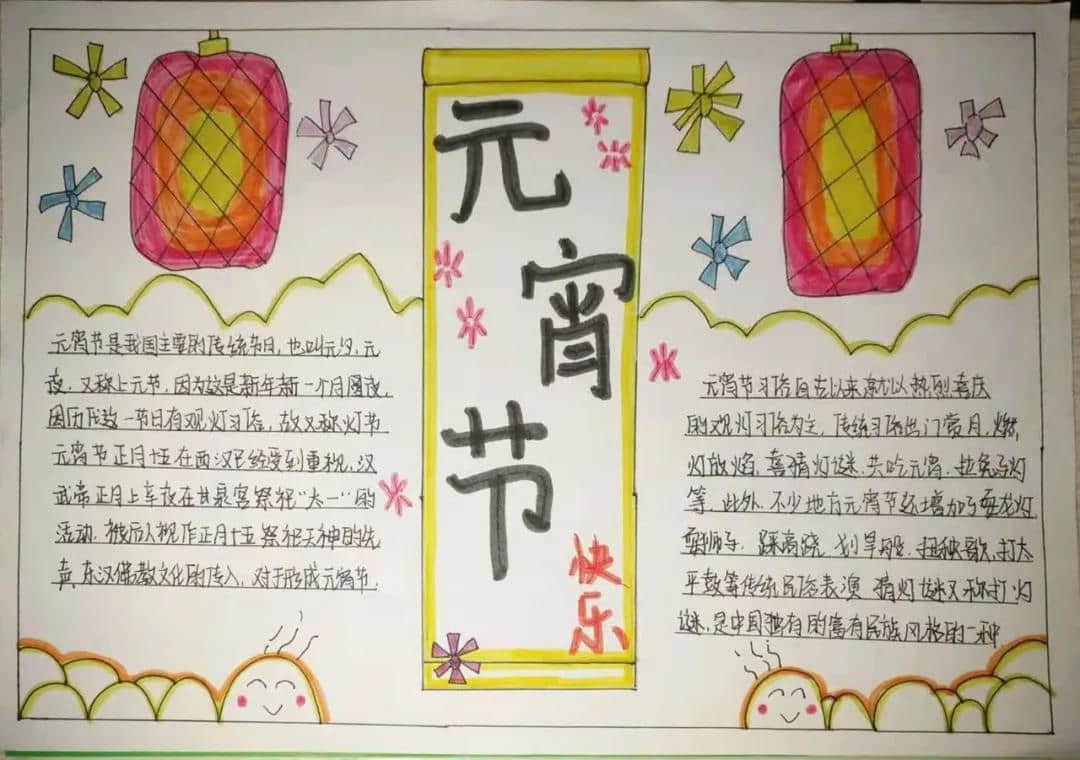 元宵节
快乐
元宵节是我国主要的传统节日,也叫元夕,元
夜,又称上元节,因为这是新年新一个月圆夜
因历代这一节日有观灯习俗,故又称灯节
元宵节正月十五在西汉已经受到重视,汉
武帝正月上辛夜在甘泉宫祭祀“太一”的
活动,被后人视作正月十五祭祀天神的先
声,东汉佛教文化的传入,对于形成元宵节
元宵节习俗自古以来就以热烈喜庆
的观灯习俗为主,传统习俗出门赏月,燃
灯放焰,喜猜灯谜,共吃元宵,拉兔子灯
等,此外,不少地方元宵节还增加了耍龙灯,
耍狮子,踩高跷,划旱船,扭秧歌,打太
平鼓等传统民俗表演 猜灯谜又称打灯
谜,是中国独有的富有民族风格的一种